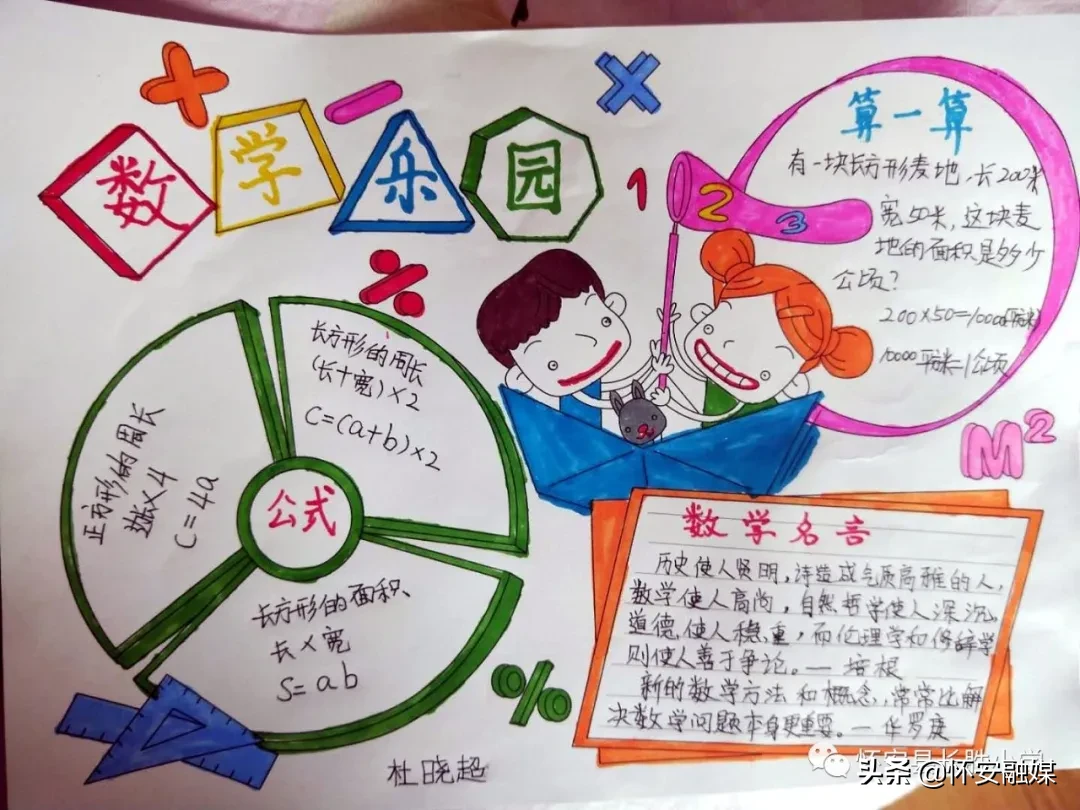 数学乐园
算一算
有一块长方形麦地，长200米
宽50米，这块麦
地的面积是多少
公顷？
200×50=10000平方米
10000平方米=1公顷
1 2 3
M²
长方形的周长
(长+宽)×2
C=(a+b)×2
正方形的周长
边长×4
C=4a
公式
长方形的面积
长×宽
S=ab
数学名言
历史使人贤明，诗造成气质高雅的人，
数学使人高尚，自然哲学使人深沉，
道德使人稳重，而伦理学和修辞学
则使人善于争论。—培根
新的数学方法和概念，常常比解
决数学问题本身更重要。—华罗庚
杜晓超
怀安县长胜小学
头条@怀安融媒